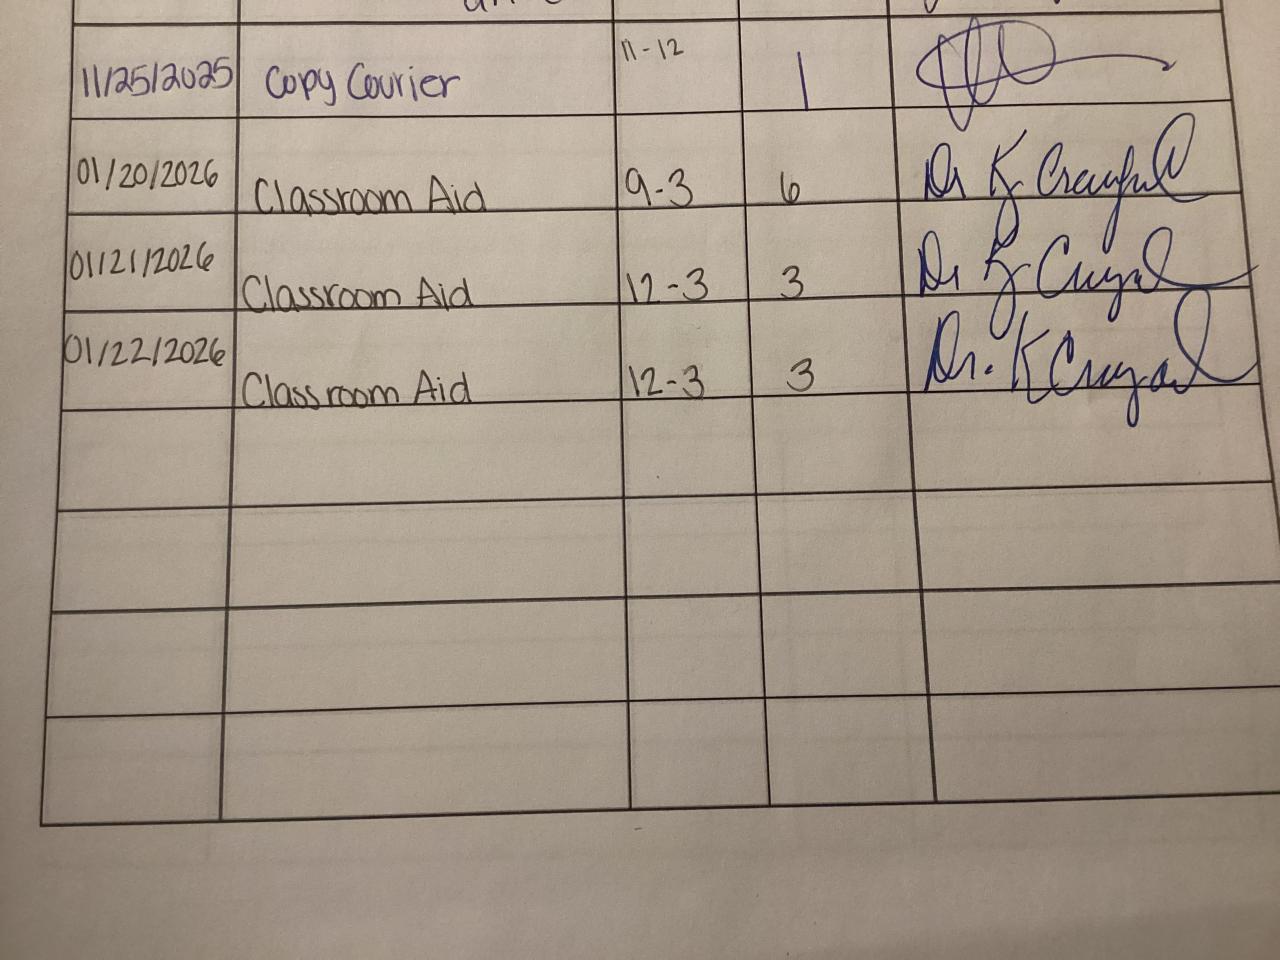 11/25/2025 Copy Courier 11-12 1
01/20/2026 Classroom Aid 9-3 6 Dr K Crawford
01/21/2026 Classroom Aid 12-3 3 Dr K
01/22/2026 Classroom Aid 12-3 3 Dr. K